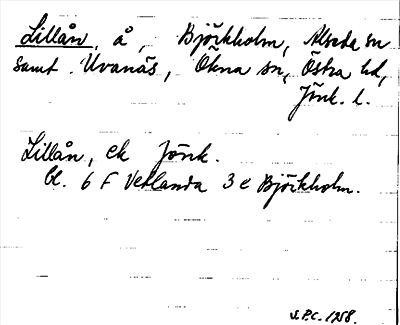 Lillån, å, Björkholm, Alseda sn
samt Uvanäs, Ökna sn, Östra hd,
Jönk. l.
Lillån, ek Jönk.
bl. 6 F Vetlanda 3 e Björkholm.
1958.